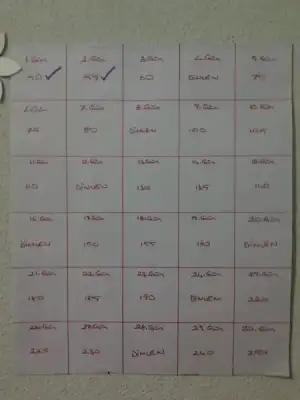 1.Gün 2.Gün 3.Gün 4.Gün 5.Gün
50 55 60 DİNLEN 70
6.Gün 7.Gün 8.Gün 9.Gün 10.Gün
75 80 DİNLEN 100 105
11.Gün 12.Gün 13.Gün 14.Gün 15.Gün
110 DİNLEN 130 135 140
16.Gün 17.Gün 18.Gün 19.Gün 20.Gün
DİNLEN 150 155 160 DİNLEN
21.Gün 22.Gün 23.Gün 24.Gün 25.Gün
180 185 190 DİNLEN 220
26.Gün 27.Gün 28.Gün 29.Gün 30.Gün
225 230 DİNLEN 240 250